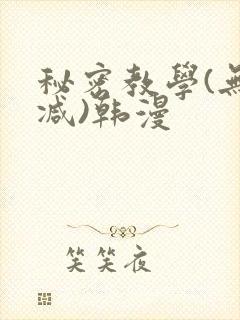 秘密教學(無
减)韩漫
笑笑夜